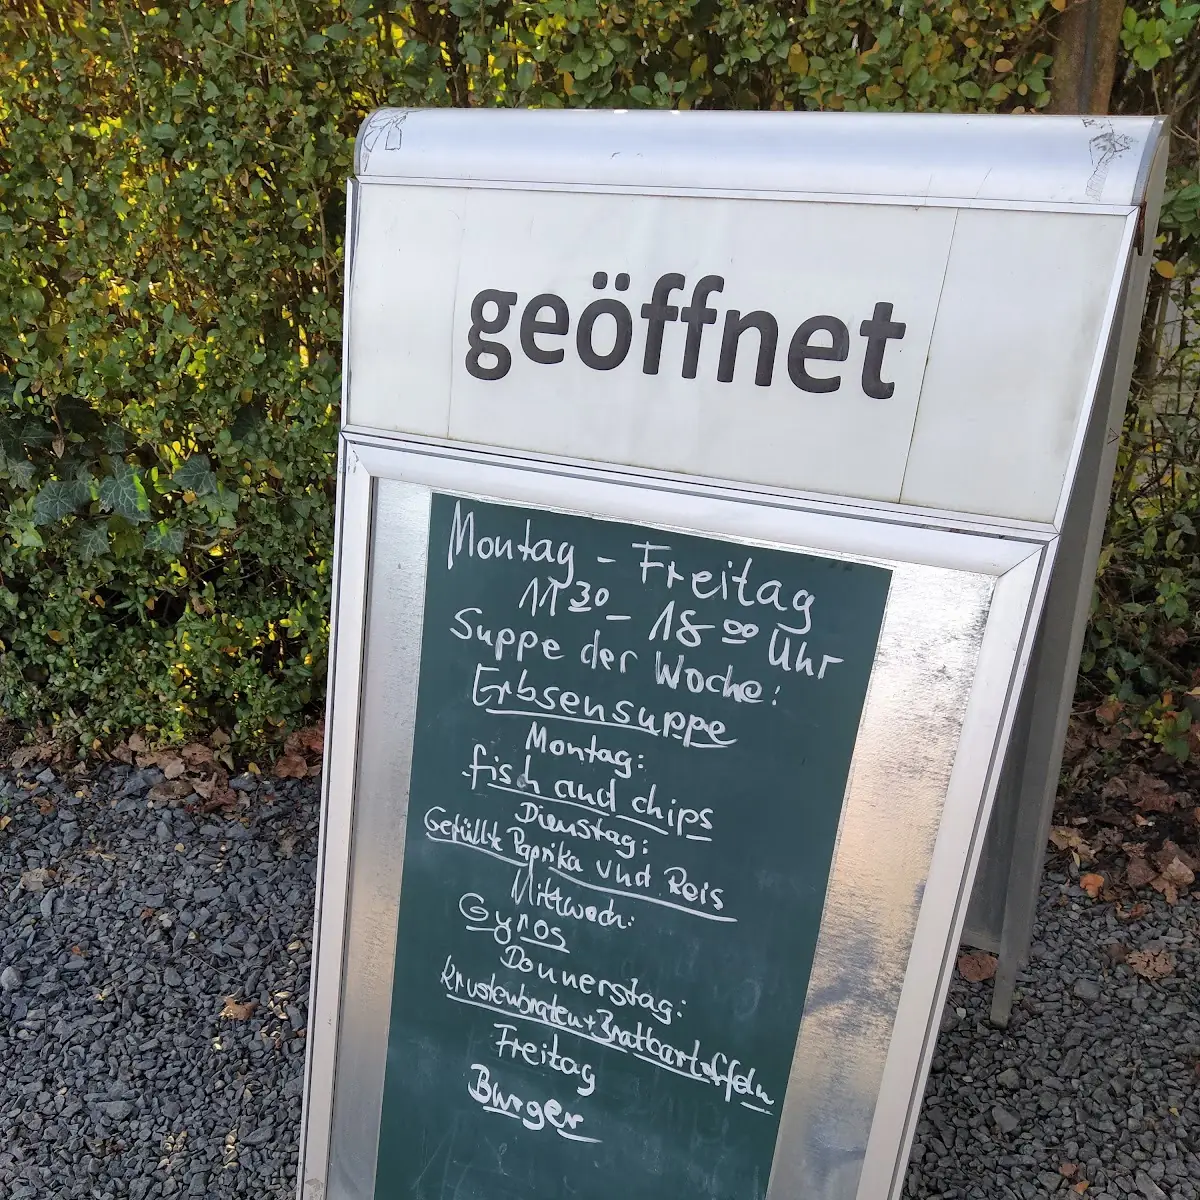 geöffnet
Montag - Freitag
11 30 - 18 00 Uhr
Suppe der Woche:
Erbsensuppe
Montag:
fisch and chips
Dienstag:
Gefüllte Paprika und Reis
Mittwoch:
Gyros
Donnerstag:
Krustenbraten + Bratkartoffeln
Freitag
Burger